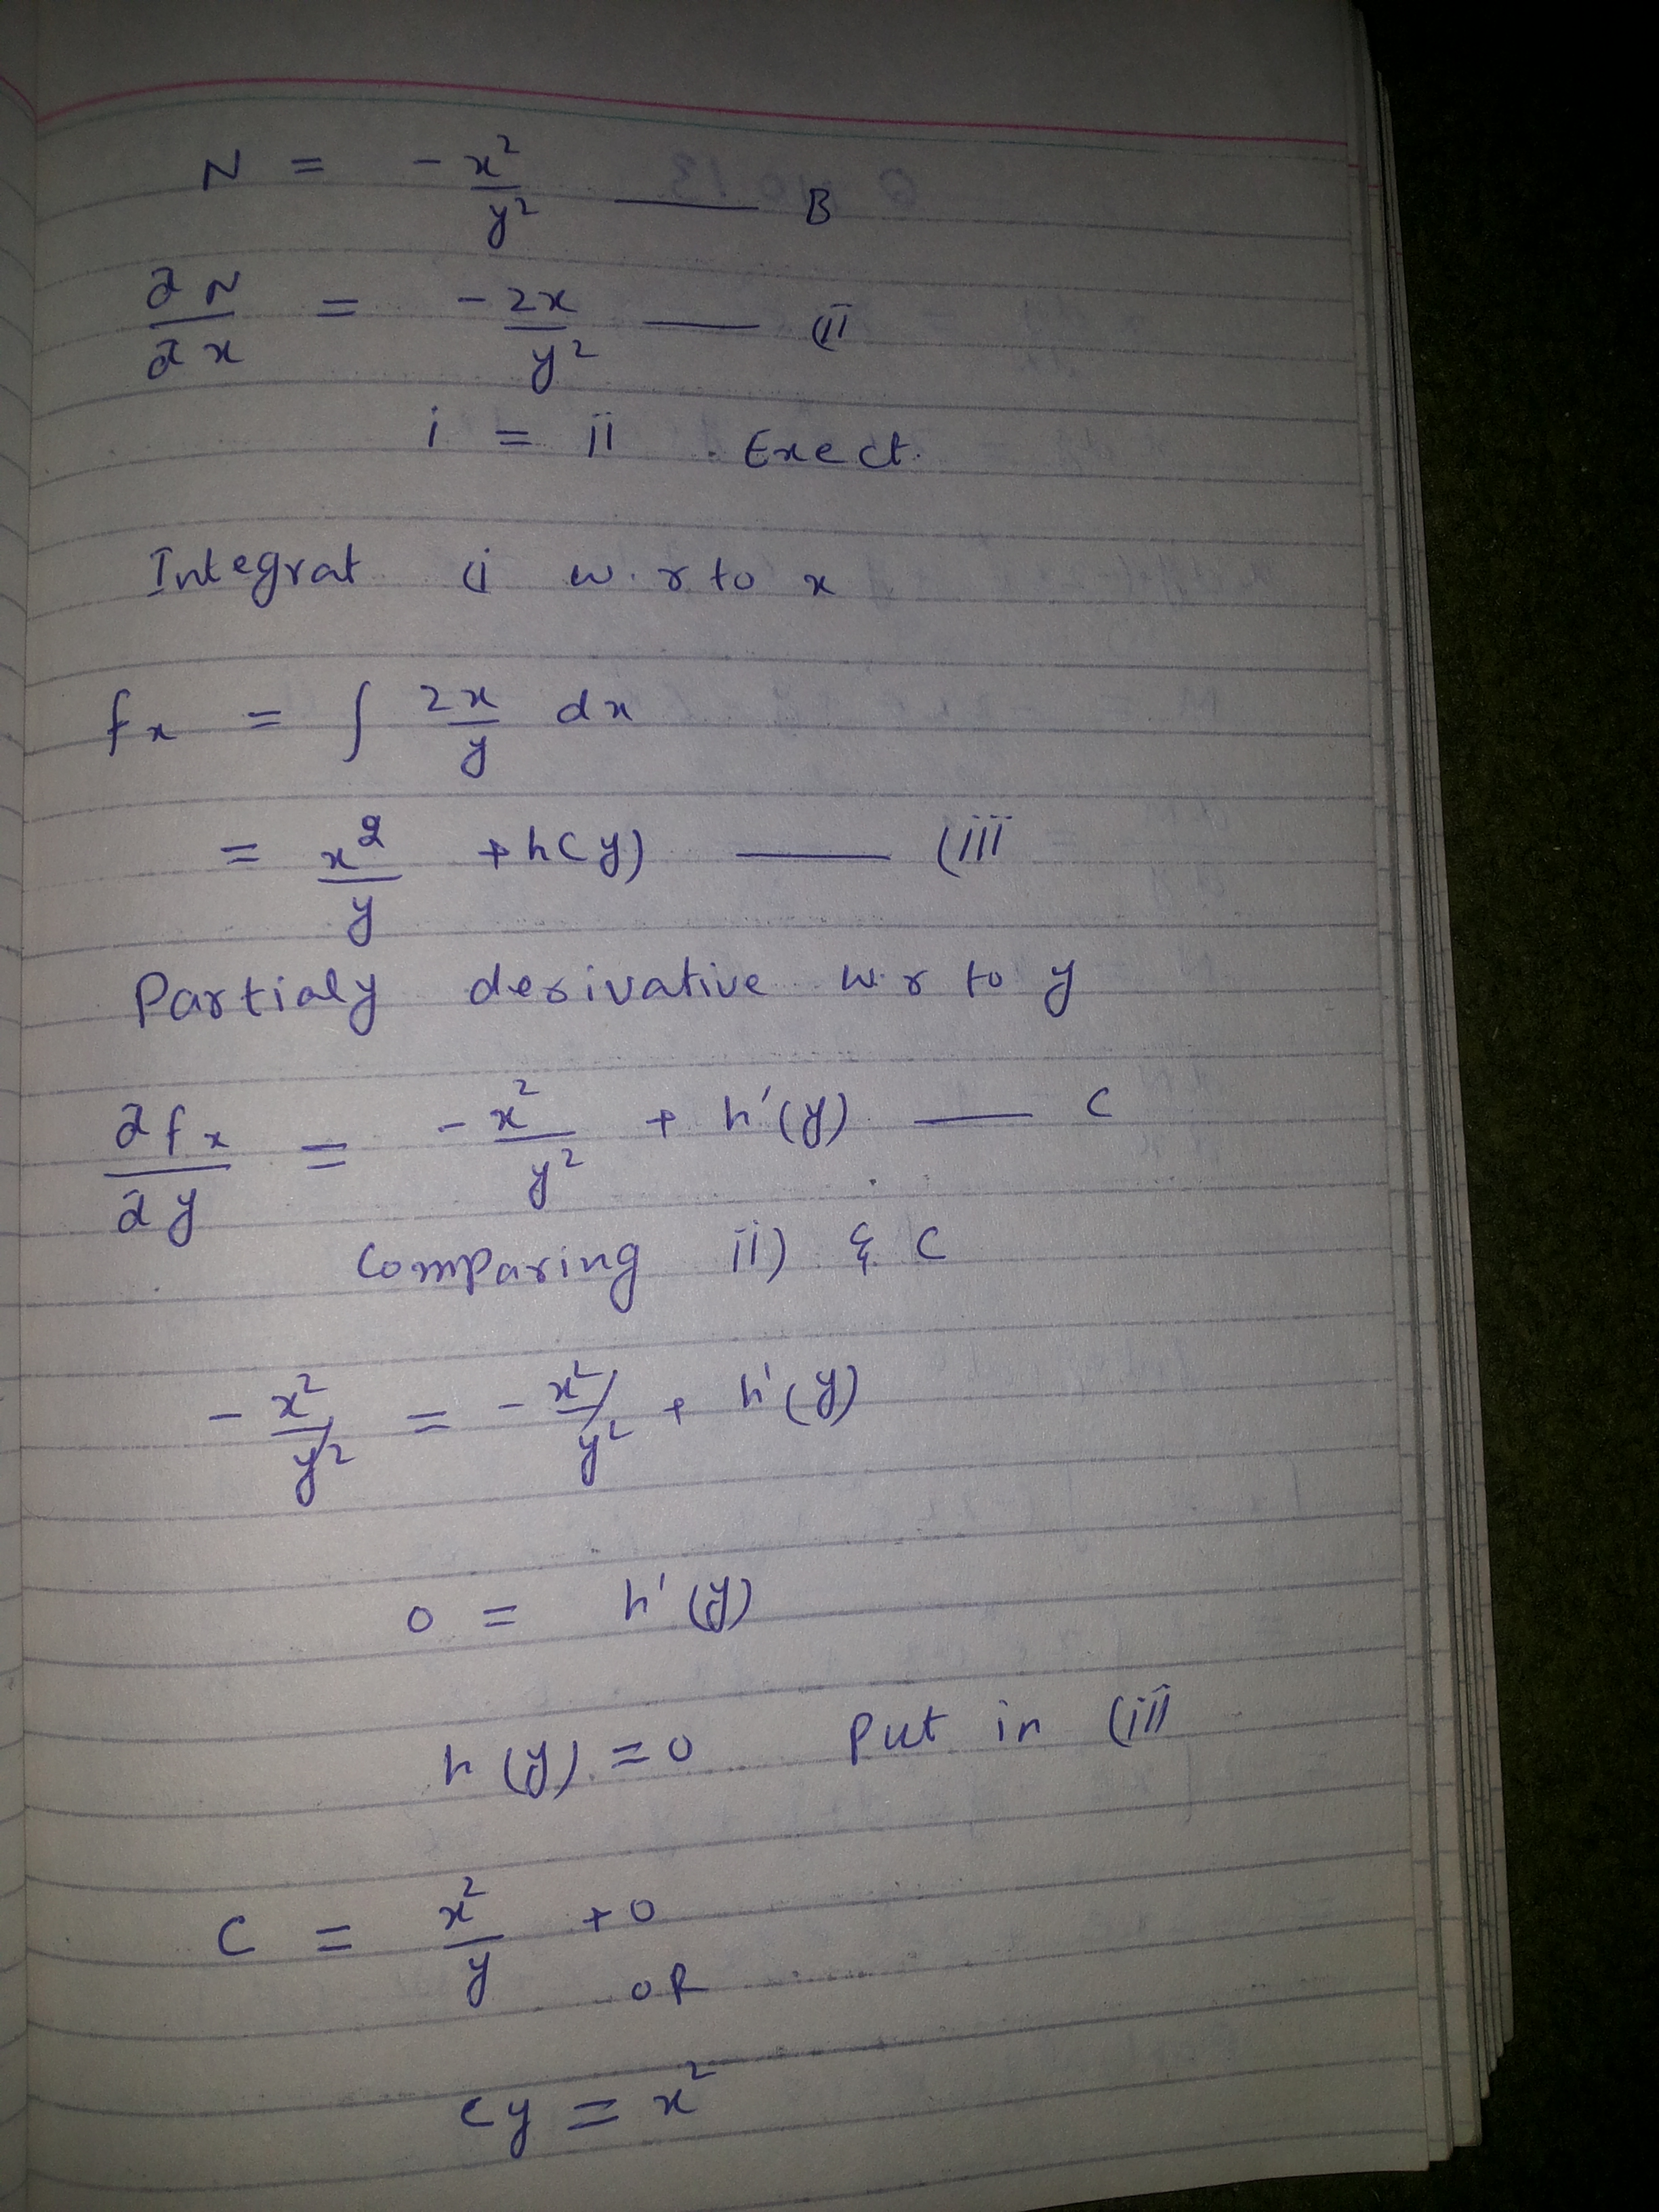 N = - x²/y² —— B
∂N/∂x = - 2x/y² —— (ii
i = ii . Exect.
Integrat (i w.r to x
fx = ∫ 2x/y dx
= x²/y + h(y) —— (iii
Partialy derivative w.r to y
∂fx/∂y = - x²/y² + h'(y) —— C
Comparing ii) & C
- x²/y² = - x²/y² + h'(y)
0 = h'(y)
h(y) = 0 Put in (iii
C = x²/y + 0
OR
cy = x²